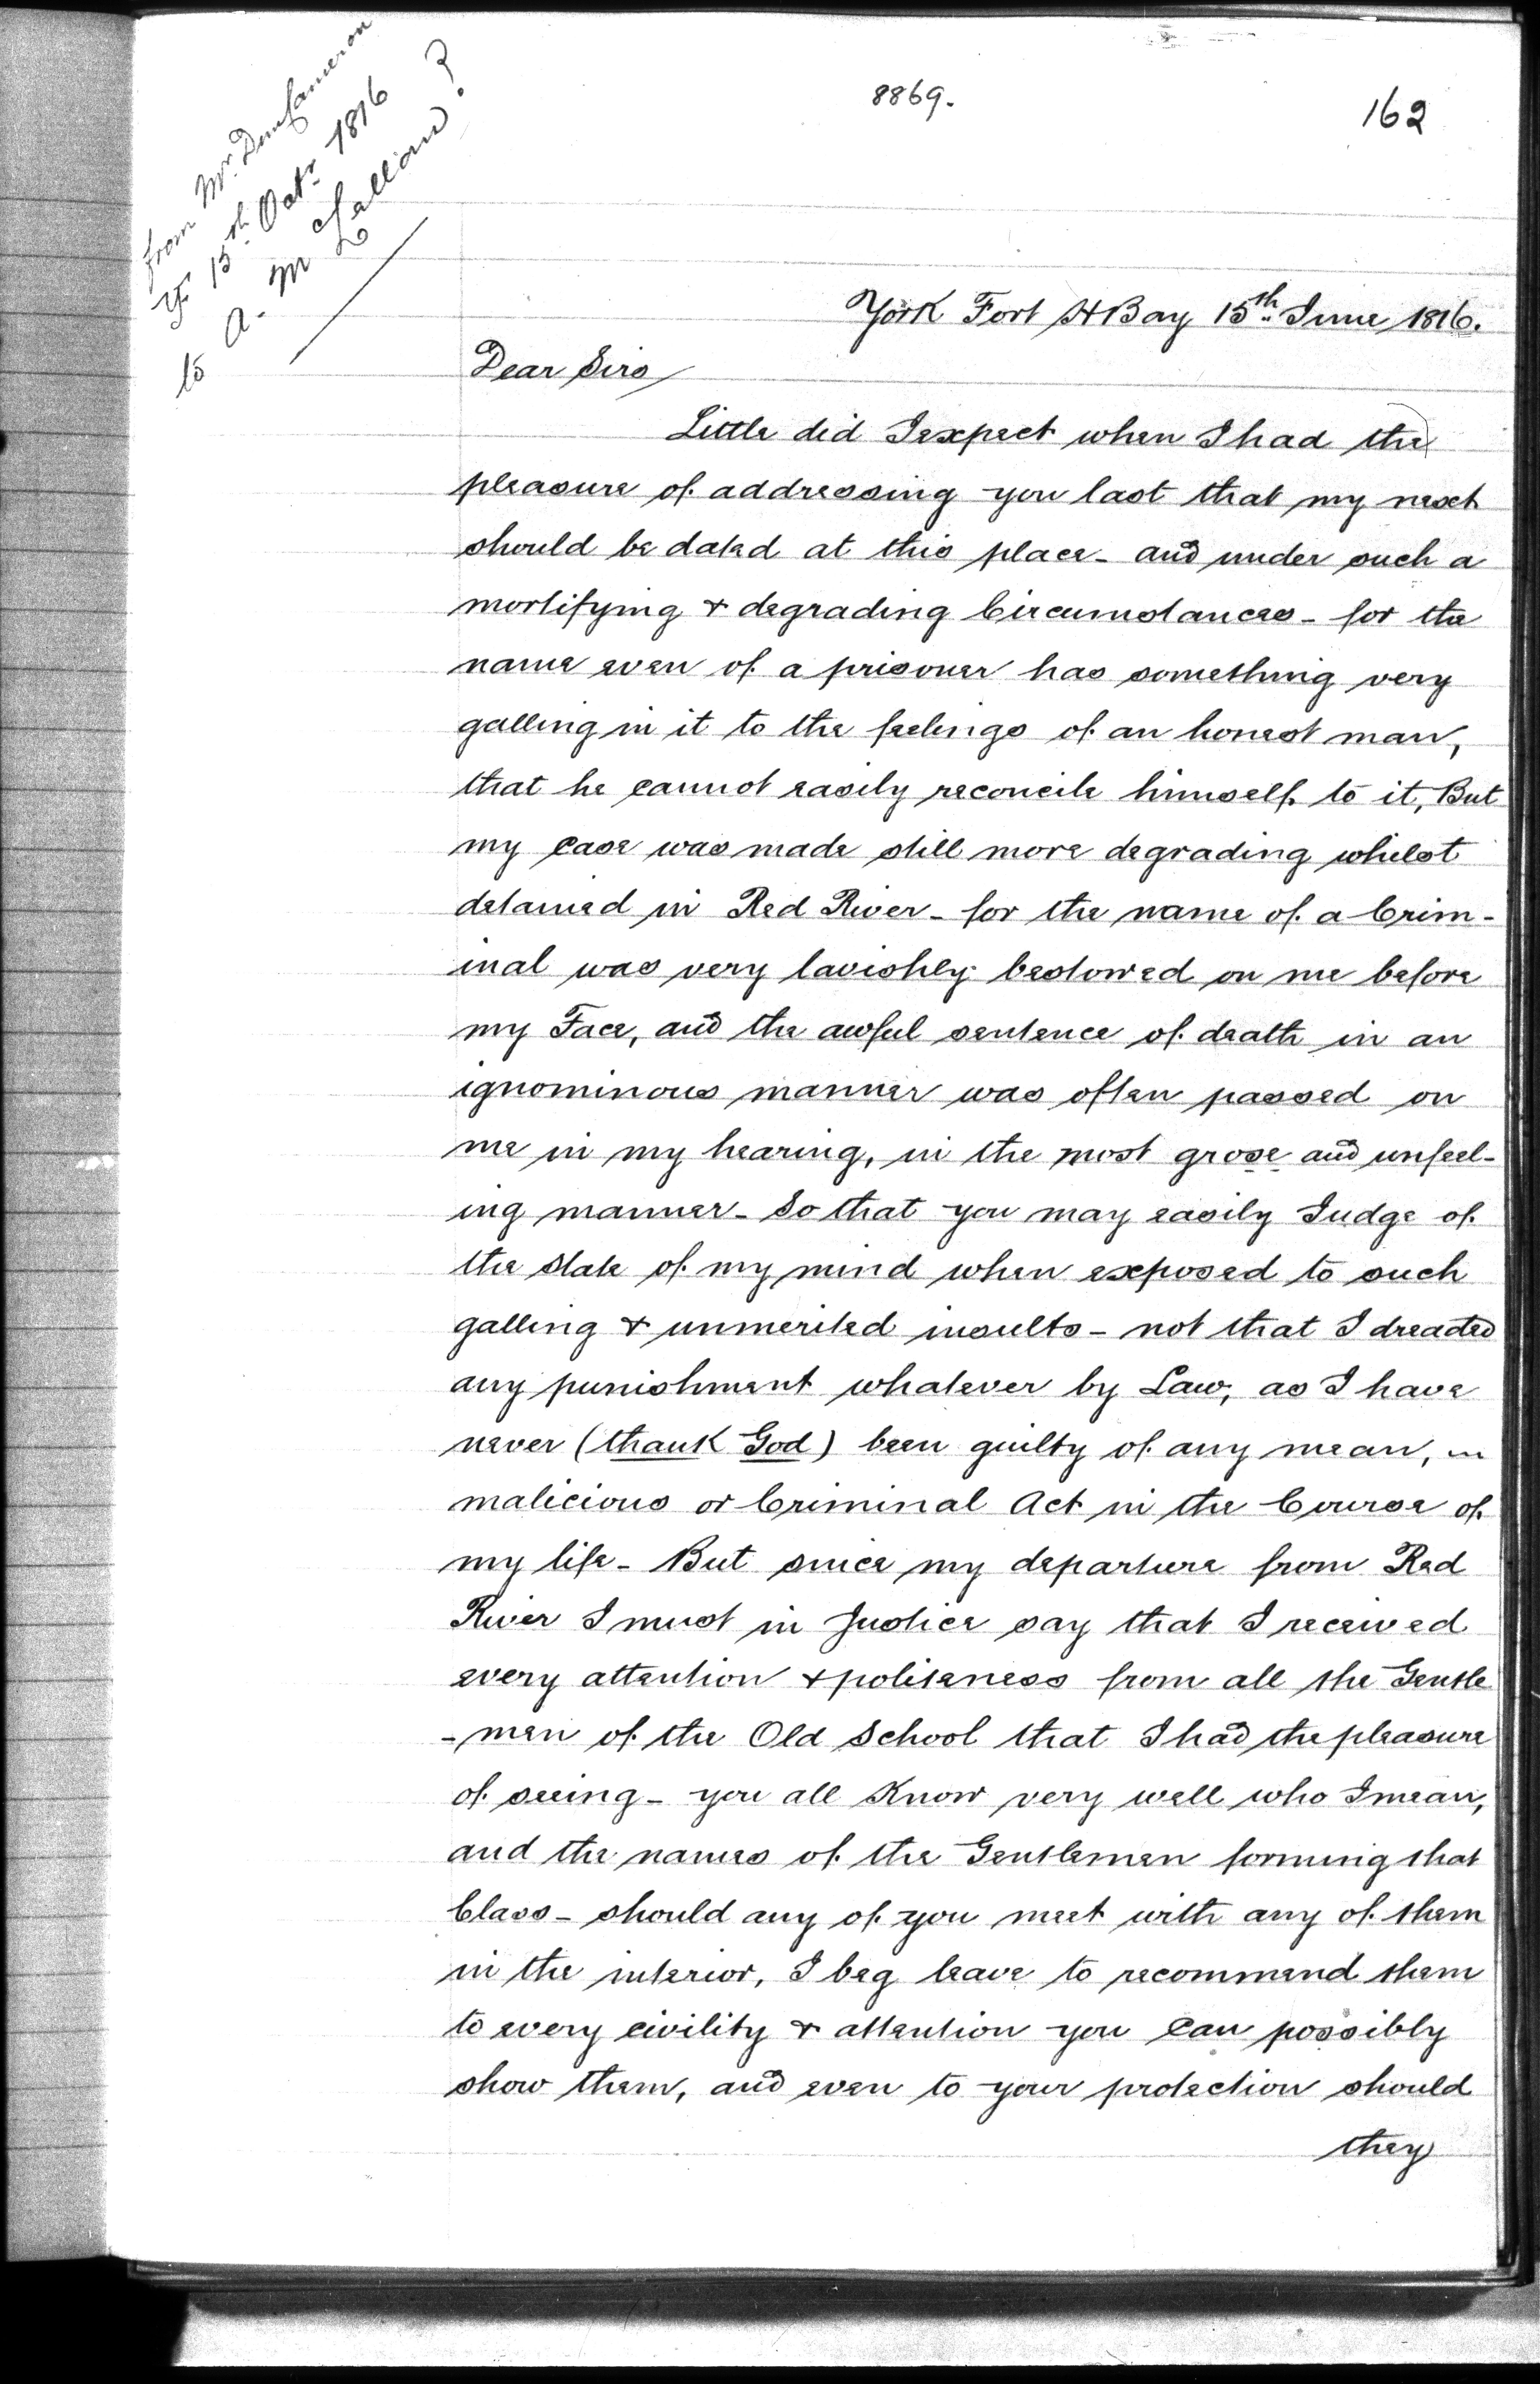 8869.
162
from Mr. Dun Cameron
15th Octr. 1816
to A. McLellan?
York Fort HBay 15th June 1816.
Dear Sirs
Little did I expect when I had the
pleasure of addressing you last that my next
should be dated at this place - and under such a
mortifying & degrading Circumstances - for the
name even of a prisoner has something very
galling in it to the feelings of an honest man,
that he cannot easily reconcile himself to it, But
my case was made still more degrading whilst
detained in Red River - for the name of a Crim-
inal was very lavishly bestowed on me before
my Face, and the awful sentence of death in an
ignominous manner was often passed on
me in my hearing, in the most grose and unfeel-
ing manner - So that you may easily Judge of
the state of my mind when exposed to such
galling & unmerited insults - not that I dreaded
any punishment whatever by Law, as I have
never (thank God) been guilty of any mean,
malicious or Criminal Act in the Course of
my life - But since my departure from Red
River I must in Justice say that I received
every attention & politeness from all the Gentle
-men of the Old School that I had the pleasure
of seeing - you all Know very well who I mean,
and the names of the Gentlemen forming that
Class - should any of you meet with any of them
in the interior, I beg leave to recommend them
to every civility & attention you can possibly
show them, and even to your protection should
they